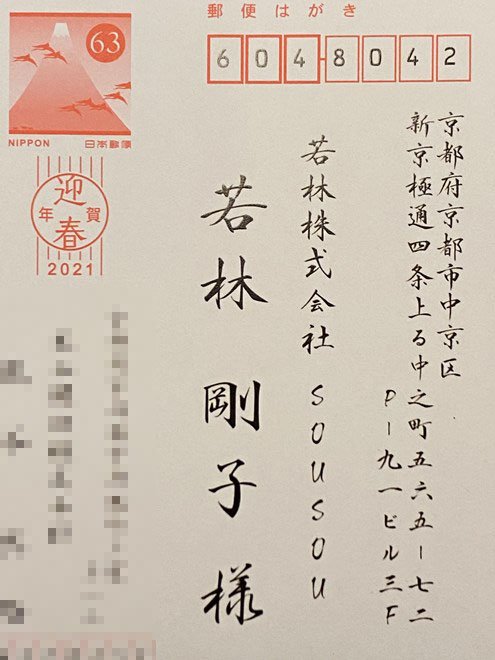 郵便はがき
604-8042
63
NIPPON 日本郵便
迎春
年賀
2021
京都府京都市中京区
新京極通四条上る中之町五六五ー七二
Pー九一ビル三F
若林株式会社 SOUSOU
若林 剛子様